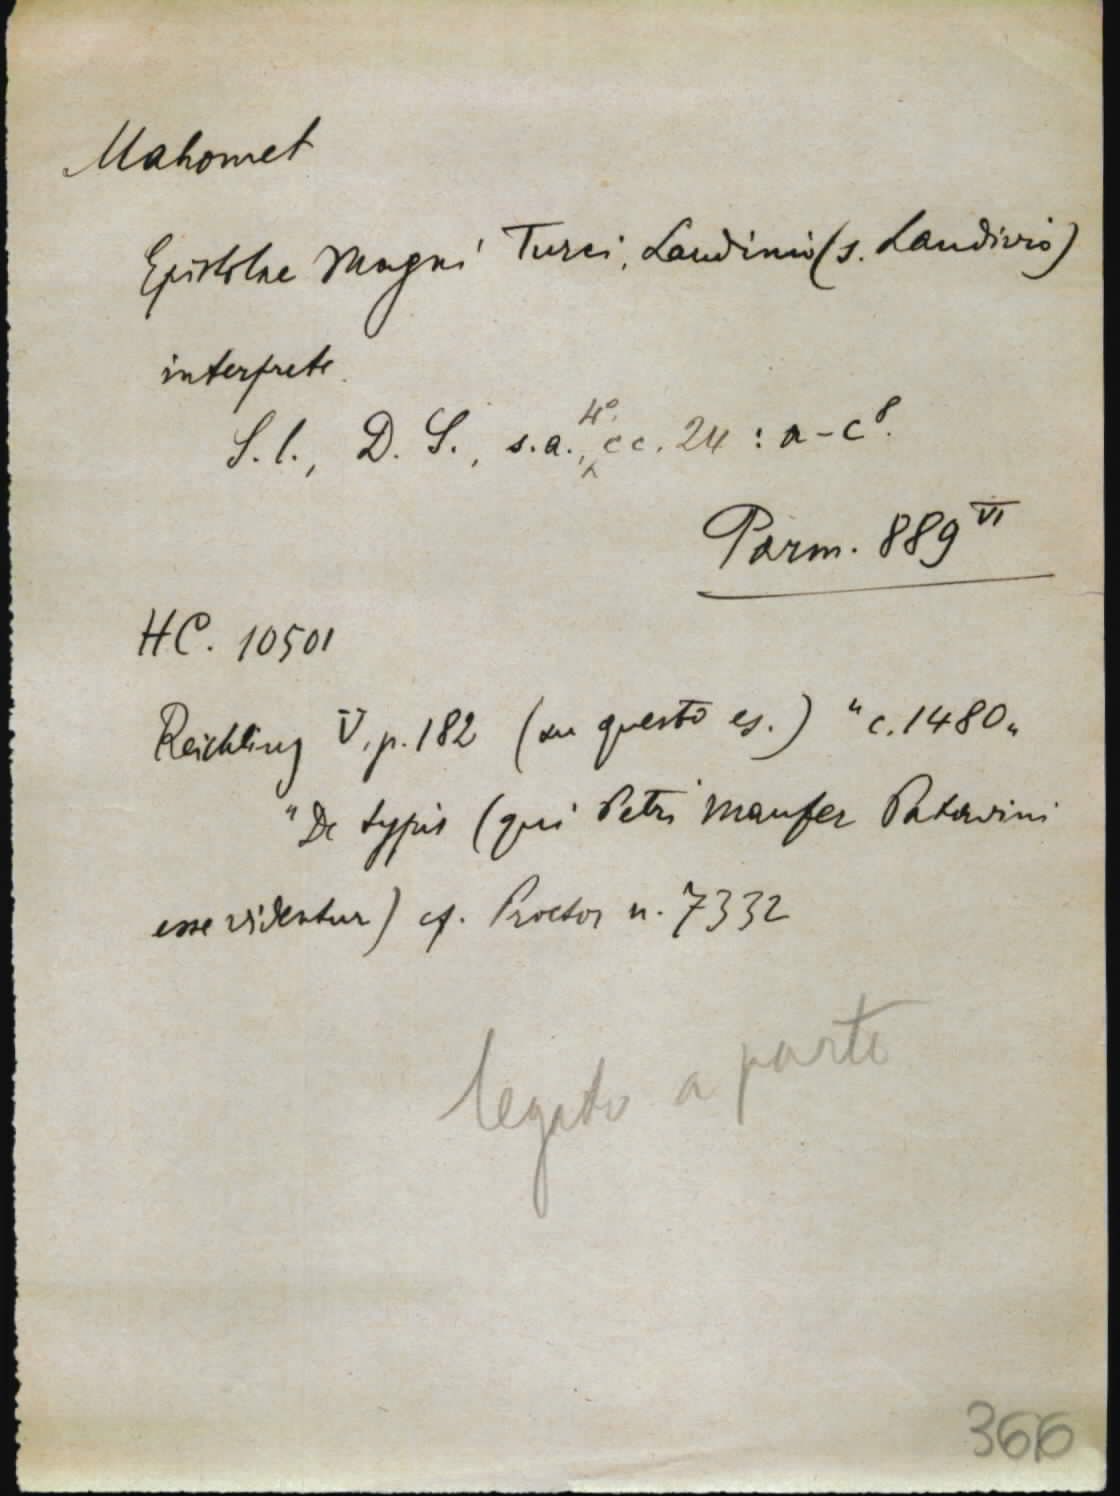 Mahomet
Epistolae Magni Turci, Laudinio (s. Laudivio)
interprete.
S. l., D. S., s.a., 4º. cc. 24 : a-c⁸.
Parm. 889 VI
HC. 10501
Reichling V, p. 182 (su questo es.) "c. 1480"
"De typis (qui Petri Maufer Patavini
esse videntur) cf. Proctor n. 7332
legato a parte
366